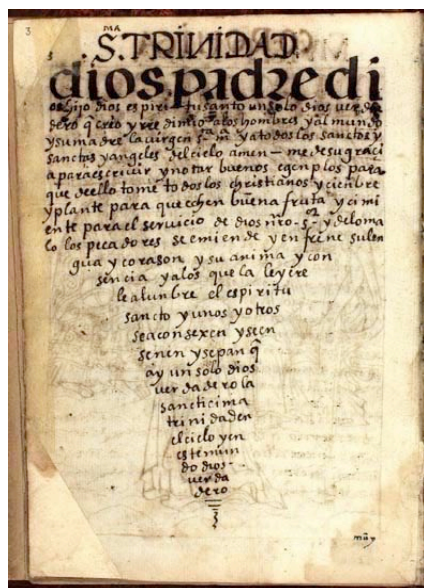 3
S.ᴹᴬ TRINIDAD
dios padre di
os hijo dios espiritu santo un solo dios verda
dero q̃ crio y rredimio a los hombres y al mundo
y su madre la virgen s.ᵗᵃ mᵃ y a todos los sanctos y
sanctas y angeles del cielo amen - me de su graci
a para escrivir y notar buenos egenplos para
que de ello tome todos los christianos y cienbre
y plante para que echen buena fruta y cimi
ente para el serui cio de dios nr̃o - s.ᵒʳ - y de lo ma
lo los pecadores se emiende y en frene su len
gua y corason y su anima y con
sencia y a los que la leyere
le alunbre el espiritu
sancto y unos y otros
se aconsexen y seen
senen y sepan q̃
ay un solo dios
verdadero la
sancticima
trinidad en
el cielo y en
este mun
do dios -
verda
dero
muy